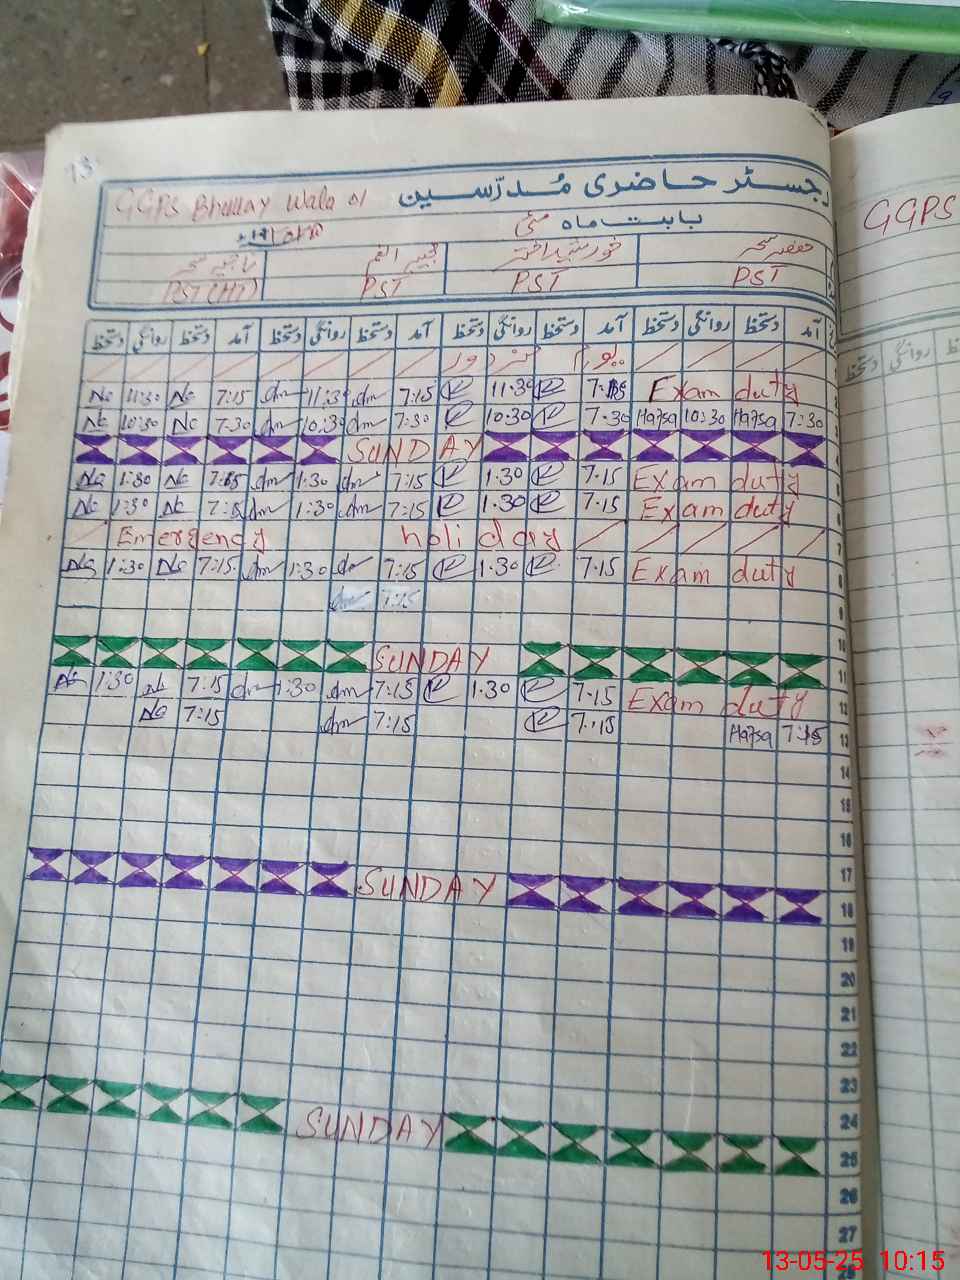 13
رجسٹر حاضری مدرسین
GGPS Bhallay Wala 01
بابت ماہ مئی
حفصہ سحر خورشید اختر
PST PST PST PST (HT)
آمد دستخظ روانگی دستخظ آمد دستخظ روانگی دستخظ آمد دستخظ روانگی دستخظ آمد دستخظ روانگی دستخظ
یوم مزدور
11:30 7:15 11:30 7:15 11:30 7:15 Exam duty
10:30 7:30 10:30 7:30 10:30 7:30 Hafsa 10:30 Hafsa 7:30 3
SUNDAY 4
1:30 7:15 1:30 7:15 1:30 7.15 Exam duty 5
1:30 7:15 1:30 7:15 1.30 7.15 Exam duty 6
Emergency holiday 7
1:30 7:15 1:30 7:15 1.30 7.15 Exam duty 8
7:15 9
10
SUNDAY 11
1:30 7:15 1:30 7:15 1.30 7:15 Exam duty 12
7:15 7:15 7:15 Hafsa 7:15 13
14
15
16
17
SUNDAY 18
19
20
21
22
23
24
SUNDAY 25
26
27
28
GGPS
دستخظ روانگی دستخظ
13-05-25 10:15